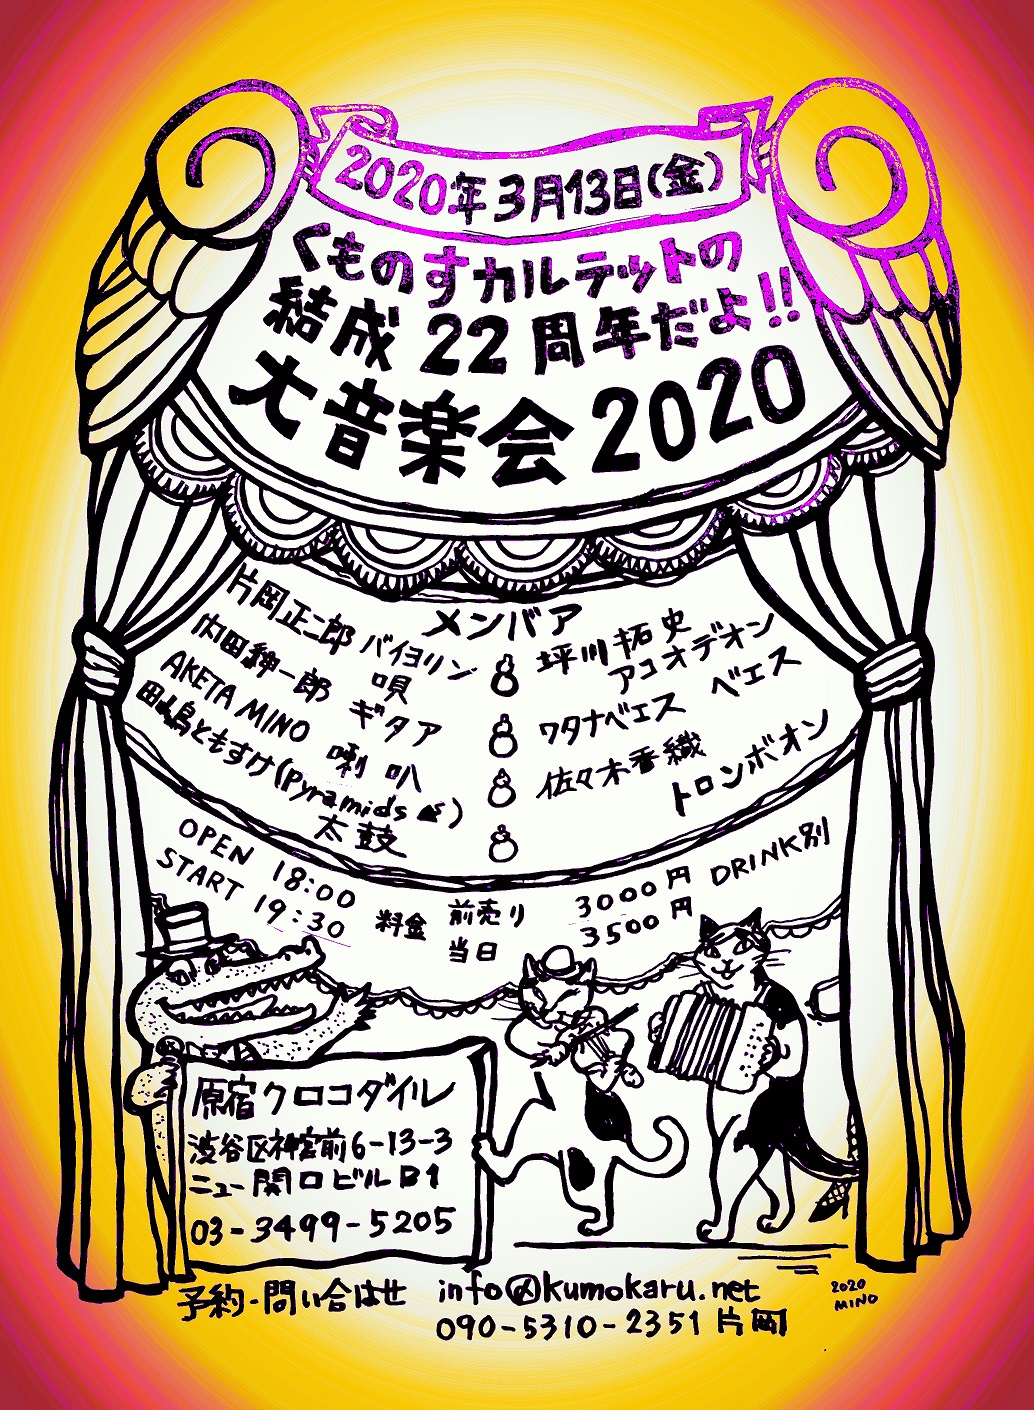 2020年3月13日(金)
くものすカルテットの
結成22周年だよ!!
大音楽会2020
メンバア
片岡正二郎 バイヨリン
唄
内田紳一郎 ギタア
AKETA MINO 喇叭
田嶋ともすけ(Pyramids)
太鼓
坪川拓史
アコオデオン
ワタナベエス ベエス
佐々木香織
トロンボオン
OPEN 18:00
START 19:30
料金 前売り 3000円 DRINK別
当日 3500円
原宿クロコダイル
渋谷区神宮前6-13-3
ニュー関口ビルB1
03-3499-5205
予約・問い合はせ info@kumokaru.net
090-5310-2351 片岡
2020
MINO